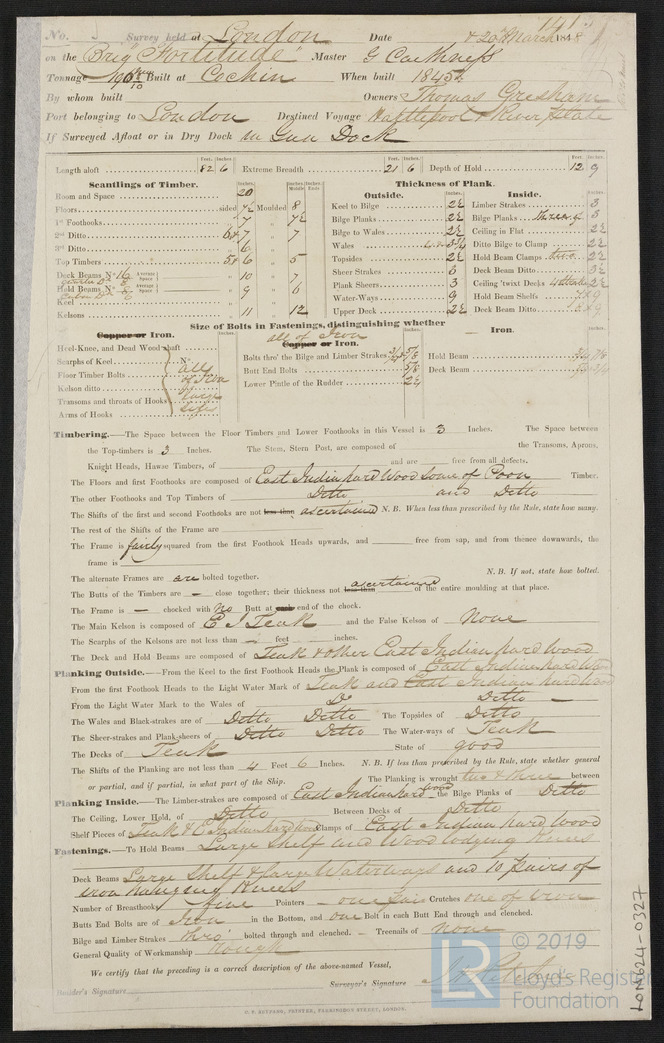 No. Survey held at London Date & 20th March 1848
on the Brig "Fortitude" Master G Caithness
Tonnage Built at Cochin When built 1845
By whom built Owners Thomas Gresham
Port belonging to London Destined Voyage Hartlepool & River Plate
If Surveyed Afloat or in Dry Dock in Gun Dock
Feet. Inches. Feet. Inches. Feet. Inches.
Length aloft 82 6 Extreme Breadth 21 6 Depth of Hold 12 9
Scantlings of Timber.
Room and Space 20
Floors sided 7½ Moulded 8
1st Foothooks " 7 " 7½
2nd Ditto 6&7 " 7
3rd Ditto " 6
Top Timbers 5&6 " 5
Deck Beams No 16 Average Space " 10 " 7
Hold Beams No Average Space " 9 " 6
Keel
Kelsons " 11 " 12
Thickness of Plank.
Outside.
Keel to Bilge 2½
Bilge Planks 2½
Bilge to Wales 2½
Wales
Topsides 2½
Sheer Strakes 3
Plank Sheers 3
Water-Ways 9
Upper Deck 2½
Inside.
Limber Strakes 3
Bilge Planks three of 3
Ceiling in Flat 2½
Ditto Bilge to Clamp 2½
Hold Beam Clamps two 2½
Deck Beam Ditto
Ceiling 'twixt Decks 2½
Hold Beam Shelfs
Deck Beam Ditto
Size of Bolts in Fastenings, distinguishing whether
Copper or Iron.
Heel-Knee, and Dead Wood shaft
Scarphs of Keel No
Floor Timber Bolts
Kelson ditto
Transoms and throats of Hooks
Arms of Hooks
all of Iron large sizes
all of Iron
Copper or Iron.
Bolts thro' the Bilge and Limber Strakes ¾ & ⅝
Butt End Bolts ⅝
Lower Pintle of the Rudder 2½
Iron.
Hold Beam
Deck Beam
Timbering.—The Space between the Floor Timbers and Lower Foothooks in this Vessel is 3 Inches. The Space between
the Top-timbers is 3 Inches. The Stem, Stern Post, are composed of the Transoms, Aprons,
Knight Heads, Hawse Timbers, of and are free from all defects.
The Floors and first Foothooks are composed of East India hard Wood Some of Poon Timber.
The other Foothooks and Top Timbers of Ditto and Ditto
The Shifts of the first and second Foothooks are not less than ascertained N.B. When less than prescribed by the Rule, state how many.
The rest of the Shifts of the Frame are
The Frame is fairly squared from the first Foothook Heads upwards, and free from sap, and from thence downwards, the
frame is
N.B. If not, state how bolted.
The alternate Frames are are bolted together.
The Butts of the Timbers are – close together; their thickness not less than ascertained of the entire moulding at that place.
The Frame is – chocked with No Butt at each end of the chock.
The Main Kelson is composed of E I Teak and the False Kelson of None
The Scarphs of the Kelsons are not less than – feet – inches.
The Deck and Hold Beams are composed of Teak & other East Indian hard Wood
Planking Outside.—From the Keel to the first Foothook Heads the Plank is composed of East Indian hard Wood
From the first Foothook Heads to the Light Water Mark of Teak and East Indian hard Wood
From the Light Water Mark to the Wales of Do Ditto –
The Wales and Black-strakes are of Ditto Ditto The Topsides of Ditto
The Sheer-strakes and Plank-sheers of Ditto Ditto The Water-ways of Teak
The Decks of Teak State of good
The Shifts of the Planking are not less than 4 Feet 6 Inches. N.B. If less than prescribed by the Rule, state whether general
or partial, and if partial, in what part of the Ship. The Planking is wrought two & three between
Planking Inside.—The Limber-strakes are composed of East Indian hard wood the Bilge Planks of Ditto
The Ceiling, Lower Hold, of Ditto Between Decks of Ditto
Shelf Pieces of Teak & E Indian hard wood Clamps of East Indian hard Wood
Fastenings.—To Hold Beams Large Shelf and Wood lodging Knees
Deck Beams Large Shelf & large Waterways and 10 pairs of
iron hanging Knees
Number of Breasthooks five Pointers – one pair Crutches one of iron
Butts End Bolts are of Iron in the Bottom, and one Bolt in each Butt End through and clenched.
Bilge and Limber Strakes thro' bolted through and clenched. – Treenails of none
General Quality of Workmanship rough
We certify that the preceding is a correct description of the above-named Vessel,
Builder's Signature Surveyor's Signature
LON624-0327
LR © 2019
Lloyd's Register
Foundation